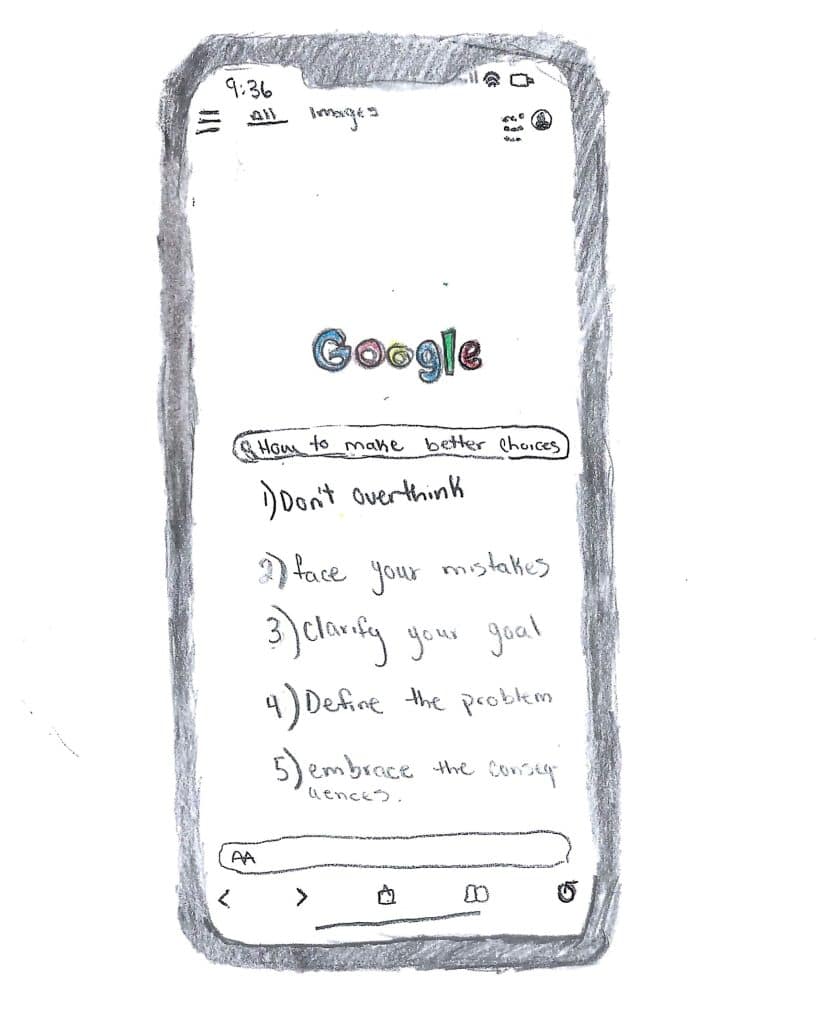 9:36
All Images
Google
How to make better Choices
1) Don't overthink
2) face your mistakes
3) Clarify your goal
4) Define the problem
5) embrace the conseq-
uences.
AA